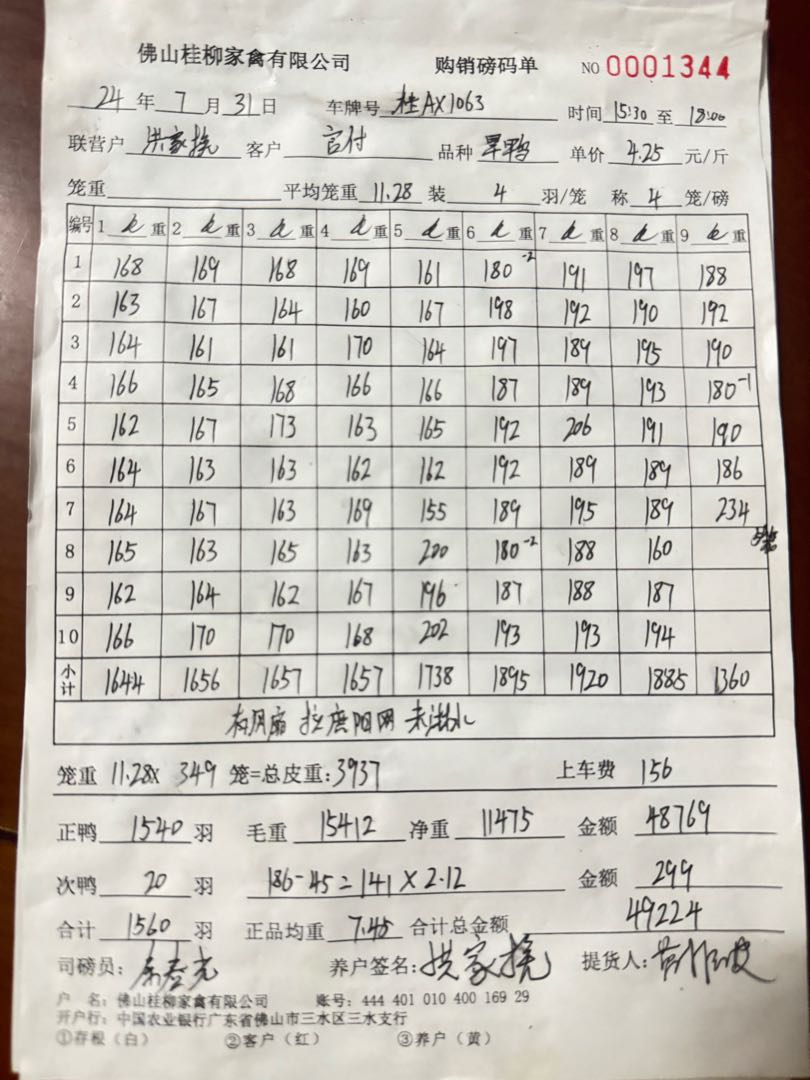 佛山桂柳家禽有限公司 购销磅码单 NO 0001344
24 年 7 月 31 日 车牌号 桂AX1063 时间 15:30 至 18:00
联营户 洪家挠 客户 官付 品种 旱鸭 单价 4.25 元/斤
笼重 平均笼重 11.28 装 4 羽/笼 称 4 笼/磅
编号 1 重 2 重 3 重 4 重 5 重 6 重 7 重 8 重 9 重
1 168 169 168 169 161 180-2 191 197 188
2 163 167 164 160 167 198 192 190 192
3 164 161 161 170 164 197 189 195 190
4 166 165 168 166 166 187 189 193 180-1
5 162 167 173 163 165 192 206 191 190
6 164 163 163 162 162 192 189 189 186
7 164 167 163 169 155 189 195 189 234
8 165 163 165 163 200 180-2 188 160
9 162 164 162 167 196 187 188 187
10 166 170 170 168 202 193 193 194
小计 1644 1656 1657 1657 1738 1895 1920 1885 1360
有风扇 拉遮阳网 未淋水
笼重 11.28X 349 笼=总皮重: 3937 上车费 156
正鸭 1540 羽 毛重 15412 净重 11475 金额 48769
次鸭 20 羽 186-45=141×2.12 金额 299
合计 1560 羽 正品均重 7.45 合计总金额 49224
司磅员: 养户签名: 洪家挠 提货人:
户 名: 佛山桂柳家禽有限公司 账号: 444 401 010 400 169 29
开户行: 中国农业银行广东省佛山市三水区三水支行
①存根(白) ②客户(红) ③养户(黄)